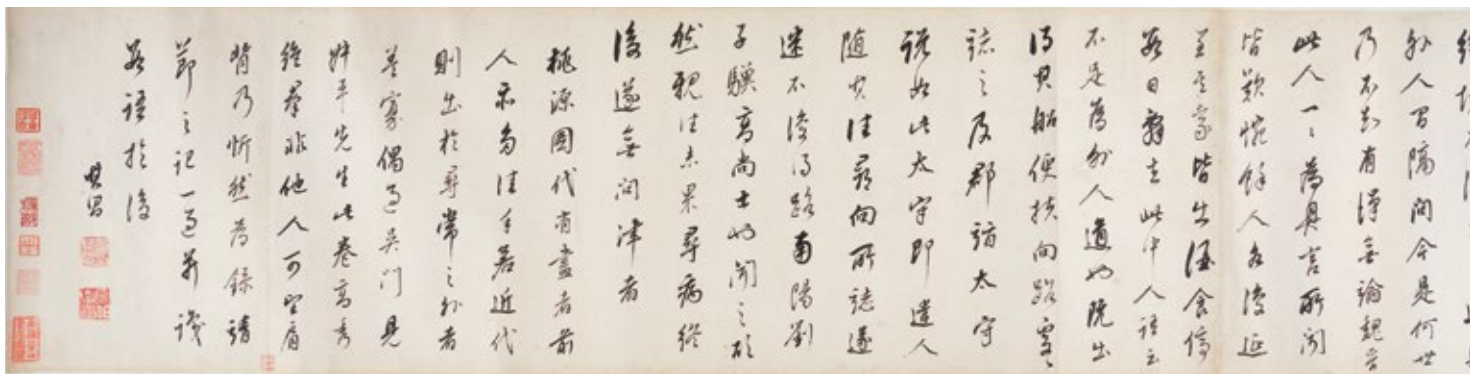 外人間隔問今是何世
乃不知有漢無論魏晉
此人一一為具言所聞
皆歎惋餘人各復延
至其家皆出酒食停
數日辭去此中人語云
不足為外人道也既出
得其船便扶向路處〻
誌之及郡詣太守
說如此太守即遣人
隨其往尋向所誌遂
迷不復得路南陽劉
子驥高尚士也聞之欣
然親往未果尋病終
後遂無問津者
桃源圖代有畫者前
人亦多佳手若近代
則出於尋常之外者
蓋寡偶過吳門見
平先生此卷高秀
絕羣非他人可望肩
背乃忻然為錄靖
節之記一過並識
數語於後
其昌